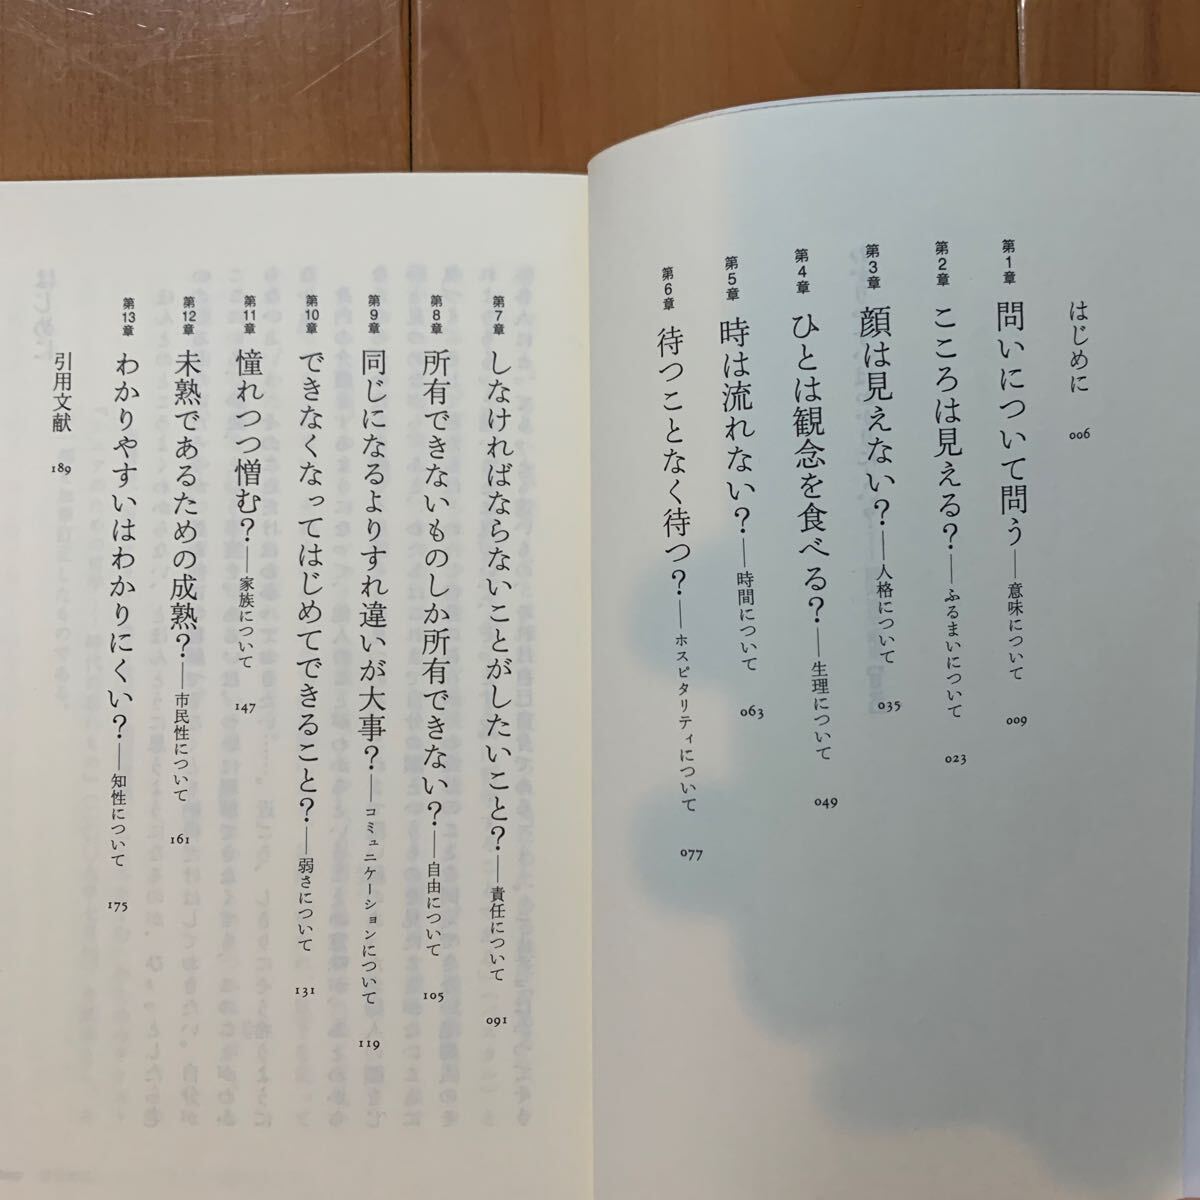 はじめに 006
第1章 問いについて問う——意味について 009
第2章 こころは見える？——ふるまいについて 023
第3章 顔は見えない？——人格について 035
第4章 ひとは観念を食べる？——生理について 049
第5章 時は流れない？——時間について 063
第6章 待つことなく待つ？——ホスピタリティについて 077
第7章 しなければならないことがしたいこと？——責任について 091
第8章 所有できないものしか所有できない？——自由について 105
第9章 同じになるよりすれ違いが大事？——コミュニケーションについて 119
第10章 できなくなってはじめてできること？——弱さについて 131
第11章 憧れつつ憎む？——家族について 147
第12章 未熟であるための成熟？——市民性について 161
第13章 わかりやすいはわかりにくい？——知性について 175
引用文献 189